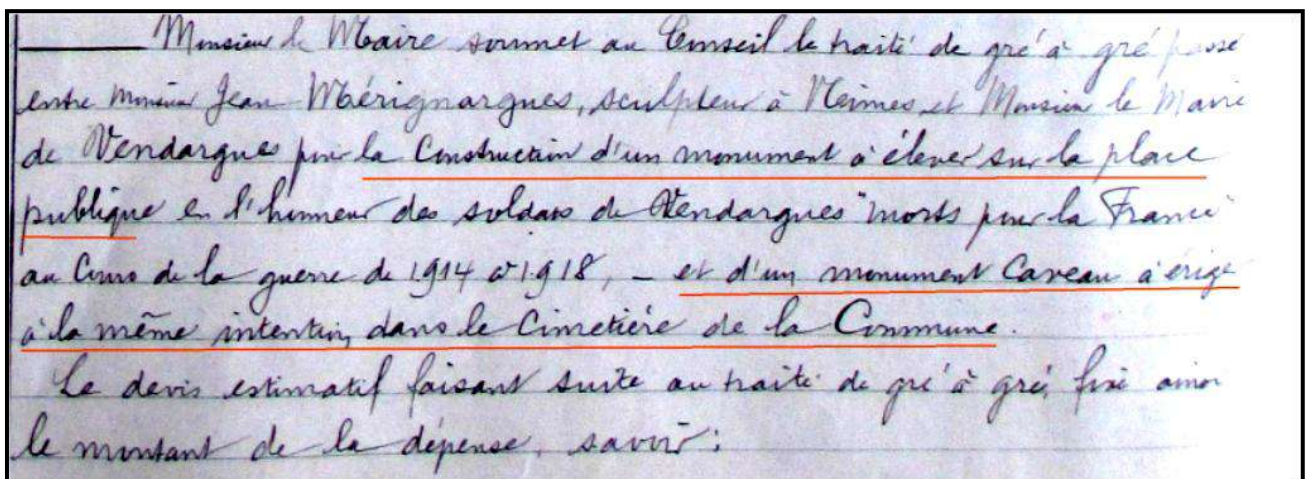 Monsieur le Maire soumet au Conseil le traité de gré à gré passé
entre Monsieur Jean Mérignargues, sculpteur à Nîmes, et Monsieur le Maire
de Vendargues pour la Construction d'un monument à élever sur la place
publique en l'honneur des soldats de Vendargues "morts pour la France"
au Cours de la guerre de 1914 à 1918, — et d'un monument Caveau à érige
à la même intention, dans le Cimetière de la Commune.
Le devis estimatif faisant suite au traité de gré à gré, fixe ainsi
le montant de la dépense, savoir :